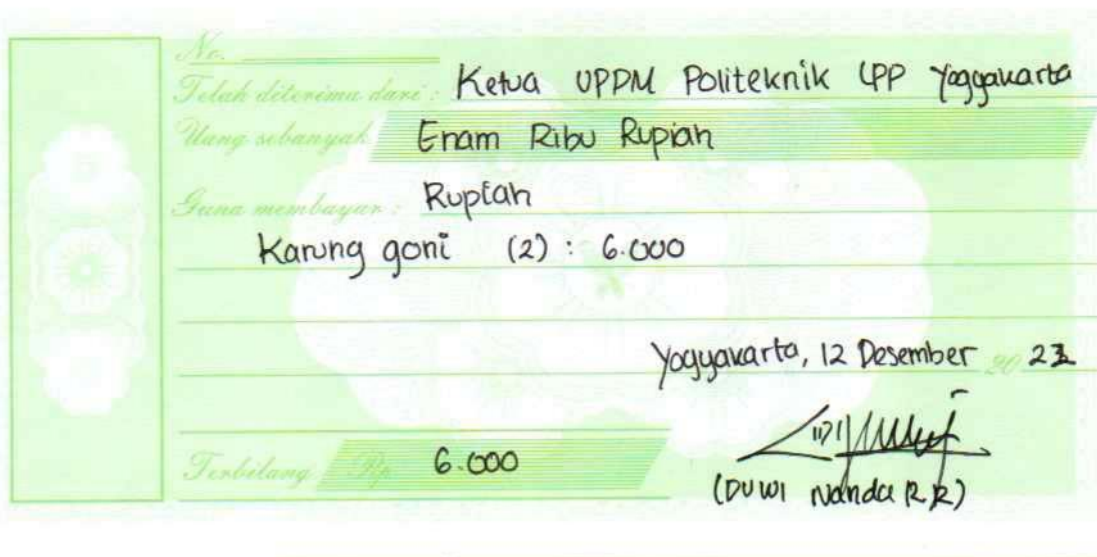 No.
Telah diterima dari : Ketua UPPM Politeknik LPP Yogyakarta
Uang sebanyak Enam Ribu Rupiah
Guna membayar : Rupiah
Karung goni (2) : 6.000
Yogyakarta, 12 Desember 20
Terbilang Rp. 6.000
(DUWI Nanda R.R)